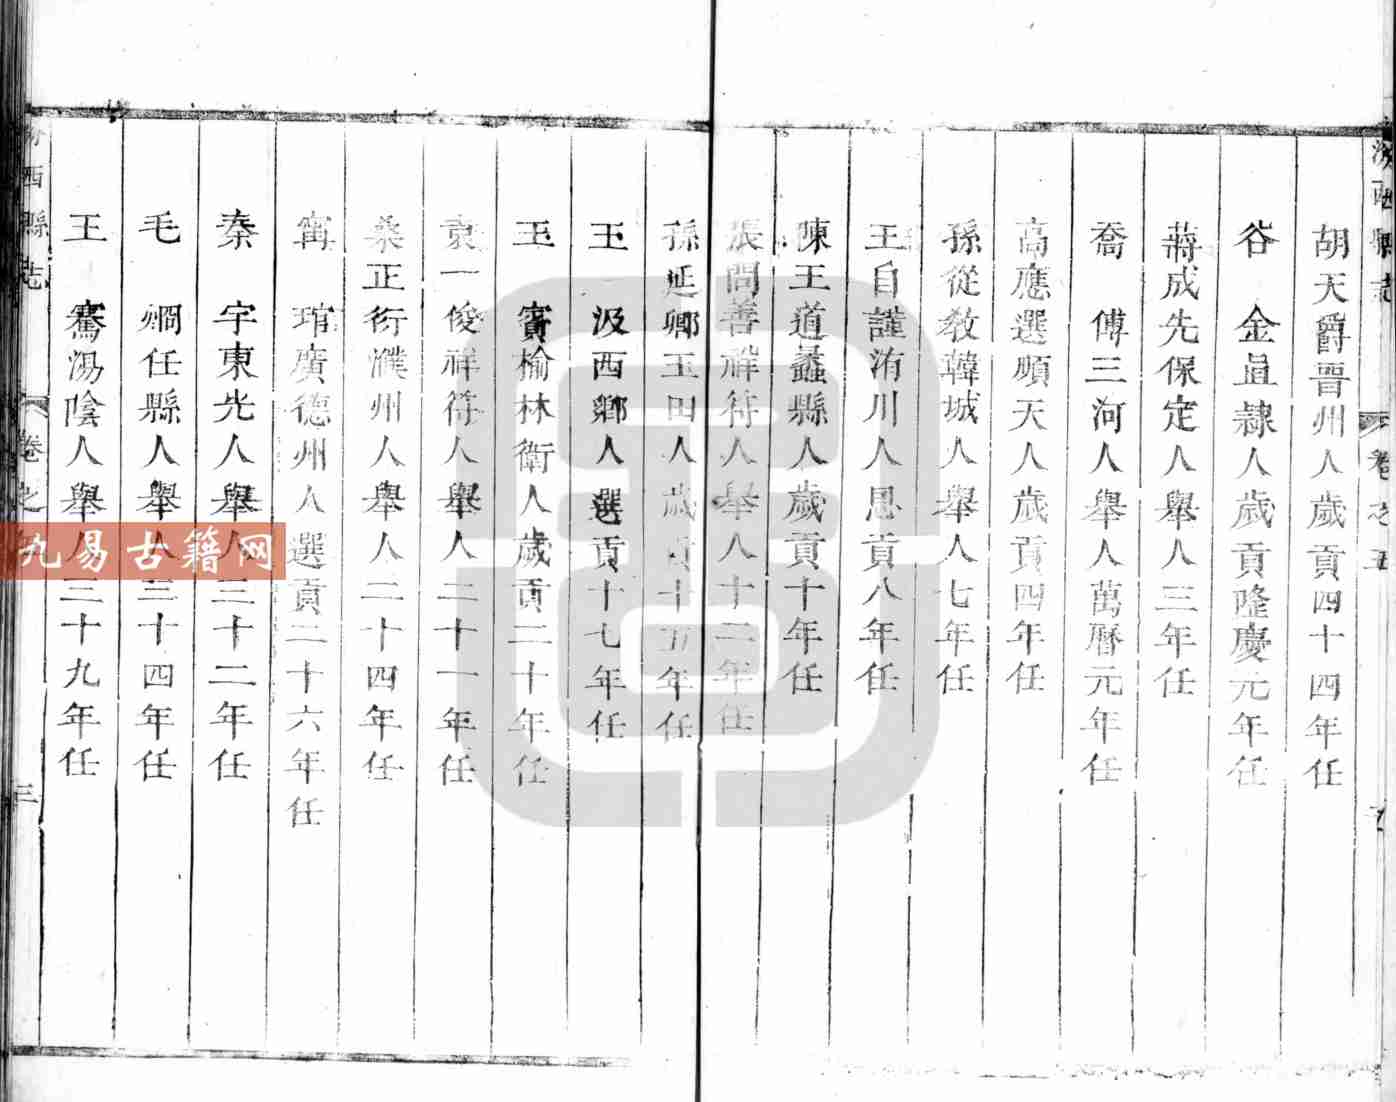 汾西縣志
卷之五
胡天爵晋州人歲貢四十四年任
谷 金直隸人歲貢隆慶元年任
蔣成先保定人舉人三年任
喬 傅三河人舉人萬曆元年任
高應選順天人歲貢四年任
孫從教韓城人舉人七年任
王自謹洧川人恩貢八年任
陳王道蠡縣人歲貢十年任
張問善祥符人舉人十二年任
孫延卿玉田人歲貢十五年任
王 汲西鄉人選貢十七年任
王 賓榆林衛人歲貢二十年任
袁一俊祥符人舉人二十一年任
桑正衍濮州人舉人二十四年任
甯 瑄廣德州人選貢二十六年任
秦 宇東光人舉人三十二年任
毛 炯任縣人舉人三十四年任
王 騫湯陰人舉人三十九年任
汾西縣志
卷之
三
九易古籍网